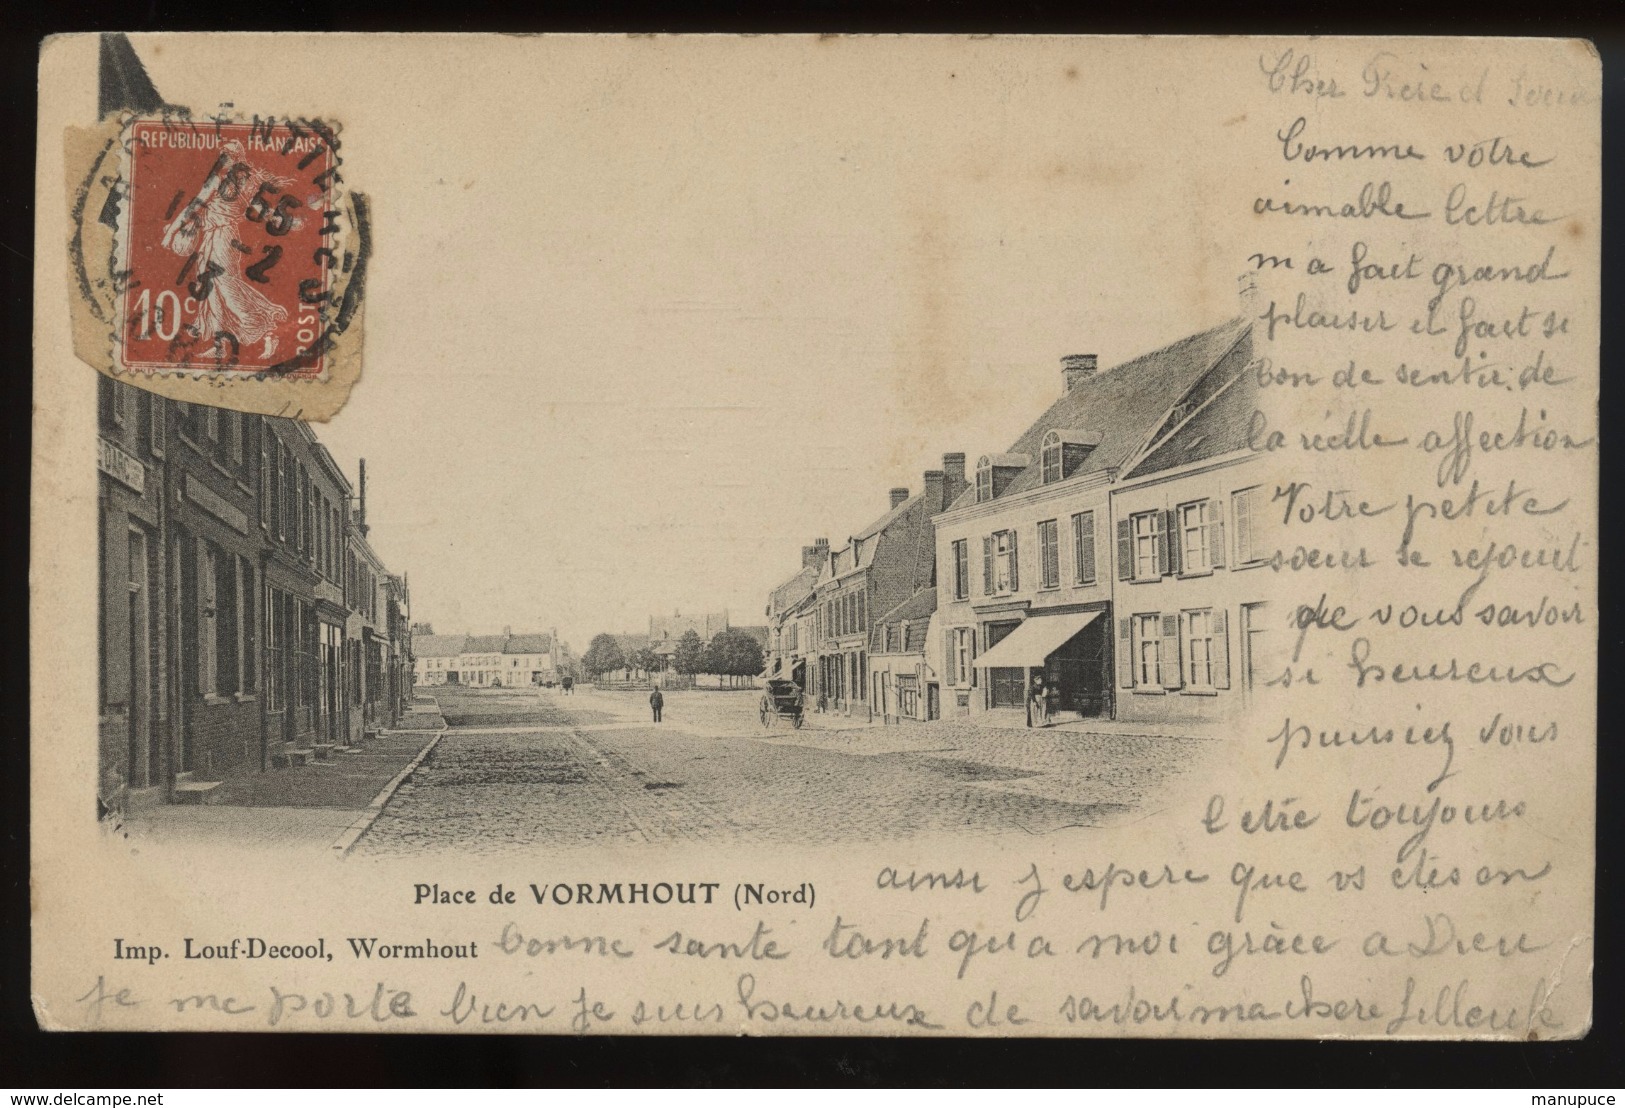 Cher Frère et Soeur
Comme votre
aimable lettre
m'a fait grand
plaisir il fait si
bon de sentir de
la réelle affection
Votre petite
soeur se réjouit
de vous savoir
si heureux
puissiez vous
l etre toujours
ainsi j espere que vs etes en
bonne santé tant qu a moi grâce a Dieu
je me porte bien je suis heureuse de savoir ma chere filleule
REPUBLIQUE FRANÇAISE
10c
POSTES
ARMENTIERES
NORD
18 55
-2
13
DARC
Place de VORMHOUT (Nord)
Imp. Louf-Decool, Wormhout
delcampe.net
manupuce